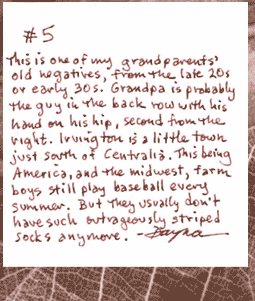 #5
This is one of my grandparents'
old negatives, from the late 20s
or early 30s. Grandpa is probably
the guy in the back row with his
hand on his hip, second from the
right. Irvington is a little town
just south of Centralia. This being
America, and the midwest, farm
boys still play baseball every
summer. But they usually don't
have such outrageously striped
socks anymore. -Dayna